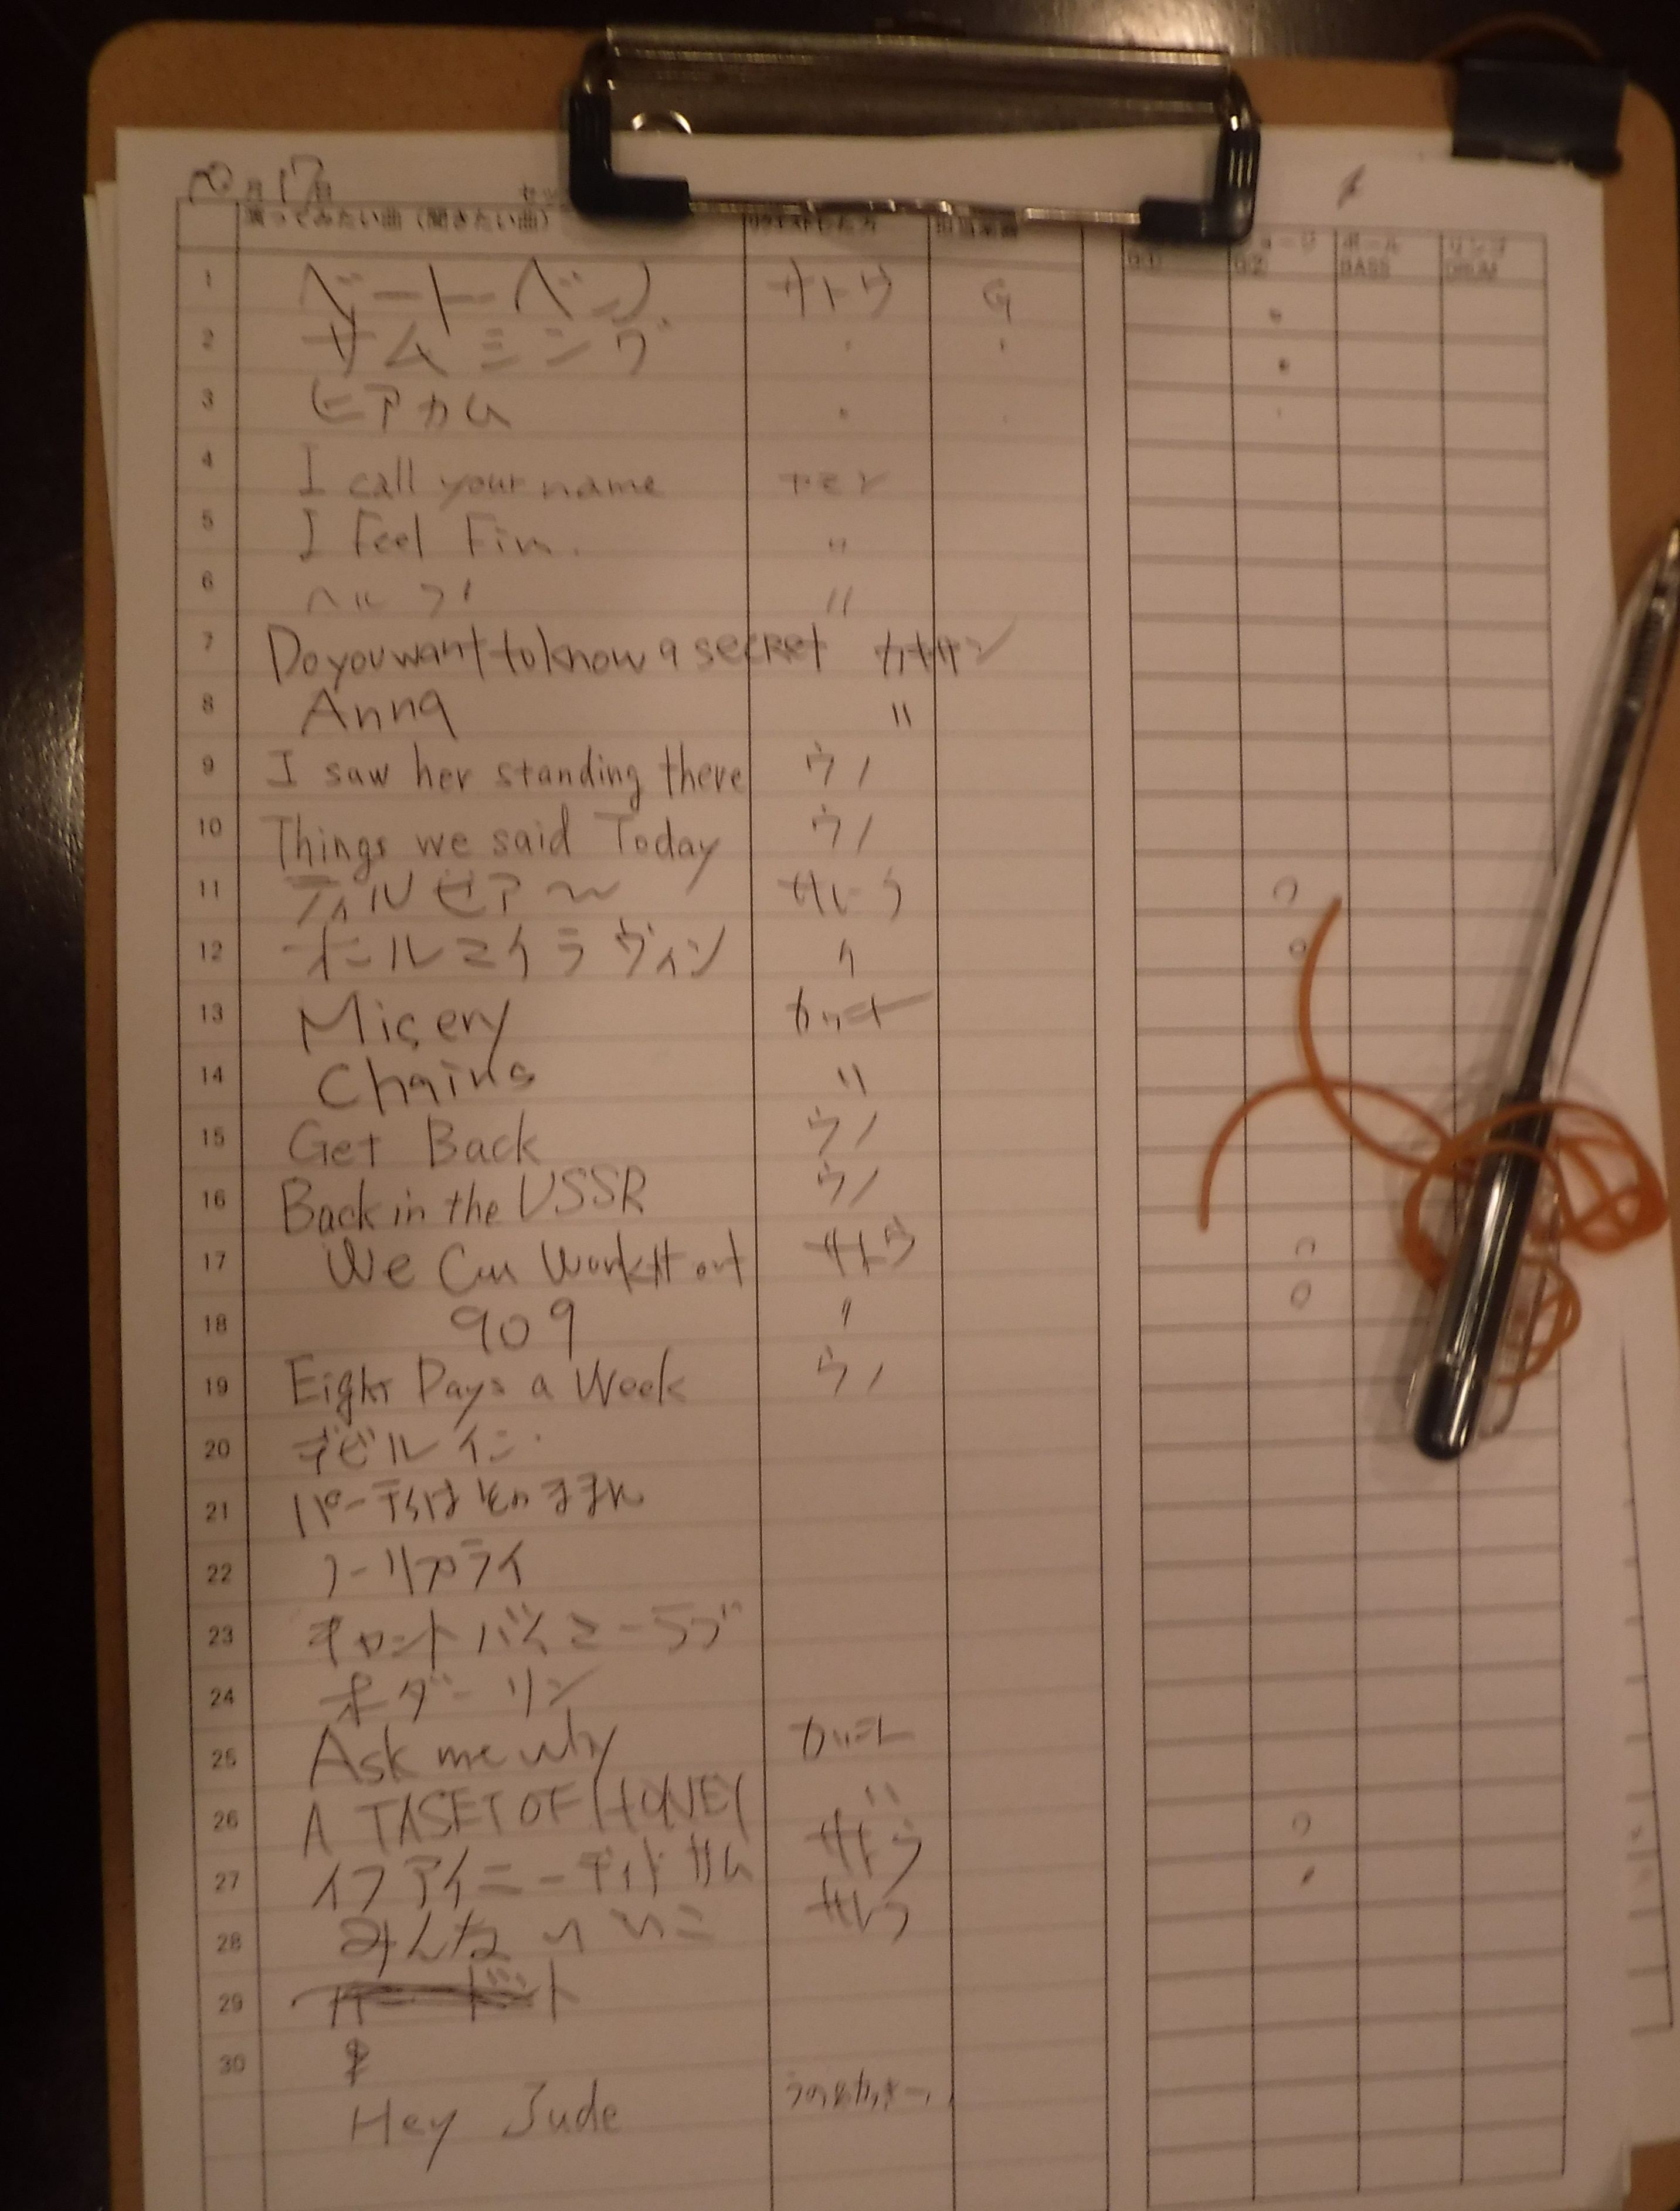 月17日 セッ
演ってみたい曲（聞きたい曲） リクエストした方 担当楽器 G② ポール BASS リンゴ DRUM
1 ベートーベン サトウ G
2 サムシング
3 ヒアカム
4 I call your name
5 I Feel Fin. 〃
6 ヘルプ 〃
7 Do you want to know a secret
8 Anna 〃
9 I saw her standing there ウノ
10 Things we said Today ウノ
11 ティルゼア〜 サトウ
12 オールマイラヴィン
13 Misery
14 Chains 〃
15 Get Back ウノ
16 Back in the USSR ウノ
17 We Can Work It out サトウ
18 909 〃
19 Eight Days a Week ウノ
20 デビルイン
21 パーティはそのまま
22 ノーリプライ
23 キャントバイミーラブ
24 オーダーリン
25 Ask me why
26 A TASET OF HONEY 〃
27 イフアイニーディドサム サトウ
28 みんないいこ サトウ
29
30
Hey Jude